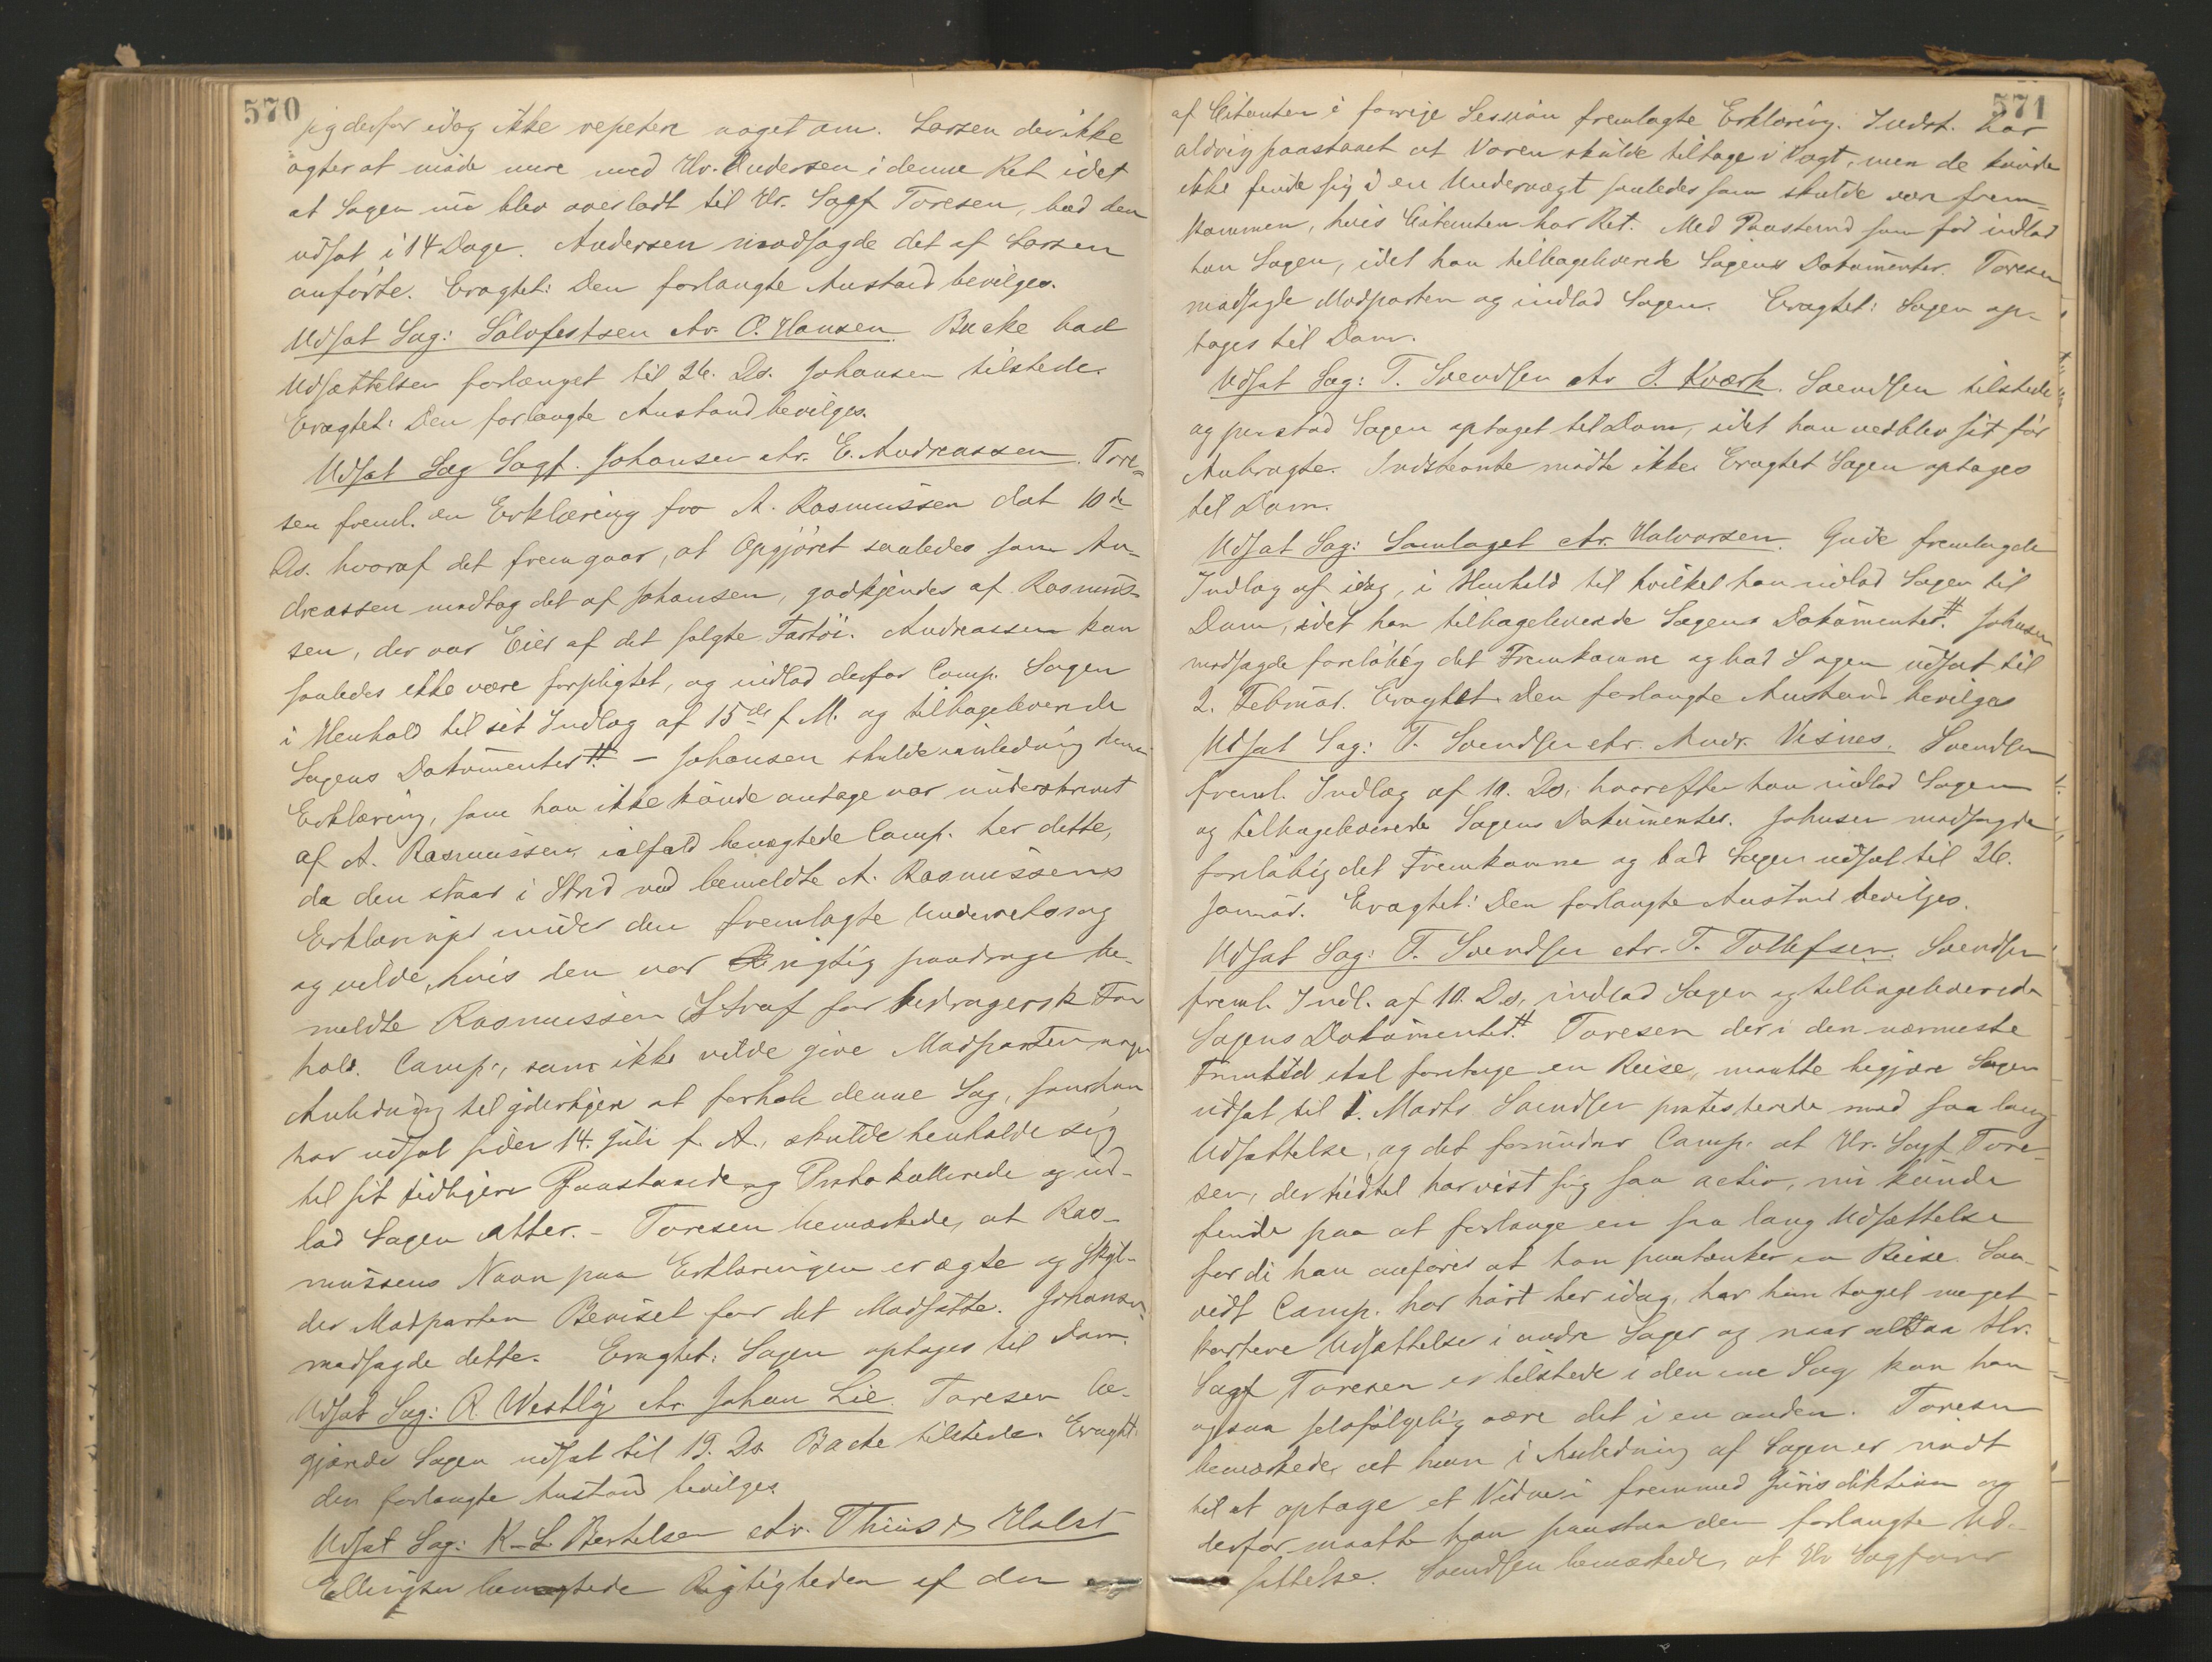 570
jeg derfor idag ikke repeterer noget om. Larsen der ikke
agter at møde mere med Hr. Andersen i denne Ret idet
at Sagen nu blev overladt til Hr. Sagf Toresen, bad den
udsat i 14 Dage. Andersen modsagde det af Larsen
anførte. Eragtet: Den forlangte Anstand bevilges.
Udsat Sag: Sølvfestsen ctr. O. Hansen. Backe bad
Udsættelsen forlænget til 26. Ds. Johansen tilstede.
Eragtet: Den forlangte Anstand bevilges.
Udsat Sag Sagf. Johansen ctr. E. Andreassen. Tore-
sen freml. en Erklæring fra A. Rasmussen dat 10de
Ds. hvoraf det fremgaar, at Opgjöret saaledes som An-
dreassen modtog det af Johansen, godkjendes af Rasmus-
sen, der var Eier af det solgte Fartöi. Andreassen kan
saaledes ikke være forpligtet, og indlod derfor Comp. Sagen
i Henhold til sit Indlæg af 15de f. M. og tilbageleverede
Sagens Dokumenter #. — Johansen skulde i anledning denne
Erklæring, som han ikke kunde antage var underskrevet
af A. Rasmussen, ialfald benægtede Comp. her dette,
da den staar i Strid med bemeldte A. Rasmussens
Erklæringer under den fremlagte Underretssag
og vilde, hvis den var rigtig paadrage be-
meldte Rasmussen Straf for bedragersk For
hold. Comp., som ikke vilde give Modparten nogen
Anledning til yderligere at forhale denne Sag, som han
har udsat siden 14. Juli f. A., skulde henholde sig
til sit tidligere Paastaaede og Protokollerede og ind-
lod Sagen atter. - Toresen bemærkede, at Ras-
mussens Navn paa Erklæringen er ægte og skyl-
der Modparten Beviset for det Modsatte. Johansen
modsagde dette. Eragtet: Sagen optages til Dom.
Udsat Sag: R. Westly ctr. Johan Lie. Toresen be-
gjærede Sagen udsat til 19. Ds. Backe tilstede. Eragtet.
den forlangte Anstand bevilges
Udsat Sag: K. L. Bertelsen ctr. Thiis & Holst
Ellingsen benægtede Rigtigheden af den
571
af Citanten i forrige Session fremlagte Erklæring. Indst. har
aldrig paastaaet at Varen skulde tiltage i Vægt, men de kunde
ikke finde sig i en Undervægt saaledes som skulde være frem-
kommen, hvis Citanten har Ret. Med Paastand som før indlod
han Sagen, idet han tilbageleverede Sagens Dokumenter. Toresen
modsagde Modparten og indlod Sagen. Eragtet: Sagen op-
tages til Dom.
Udsat Sag: T. Svendsen ctr J. Kværk. Svendsen tilstede
og paastod Sagen optaget til Dom, idet han vedblev sit før
Anbragte. Indstevnte mødte ikke. Eragtet Sagen optages
til Dom.
Udsat Sag: Samlaget ctr. Halvorsen. Gude fremlagde
Indlæg af idag, i Henhold til hvilket han indlod Sagen til
Dom, idet han tilbageleverede Sagens Dokumenter #. Johnsen
modsagde foreløbig det Fremkomne og bad Sagen udsat til
2. Februar. Eragtet. Den forlangte Anstand bevilges
Udsat Sag: T. Svendsen ctr. Andr. Visnes. Svendsen
freml. Indlæg af 10. Ds, hvorefter han indlod Sagen
og tilbageleverede Sagens Dokumenter. Johnsen modsagde
foreløbig det Fremkomne og bad Sagen udsat til 26.
Januar. Eragtet: Den forlangte Anstand bevilges.
Udsat Sag: T. Svendsen ctr. T. Tollefsen. Svendsen
freml. Indl. af 10. Ds, indlod Sagen og tilbageleverede
Sagens Dokumenter #. Toresen der i den nærmeste
Fremtid skal foretage en Reise, maatte begjære Sagen
udsat til 1. Marts. Svendsen protesterede mod saa lang
Udsættelse, og det forundrer Comp. at Hr. Sagf Tore-
sen, der hidtil har vist sig saa activ, nu kunde
finde paa at forlange en saa lang Udsættelse
fordi han anfører at han paatænker en Reise. Saa-
vidt Comp. har hørt her idag, har han taget meget
kortere Udsættelser i andre Sager og naar altsaa Hr.
Sagf Toresen er tilstede i den ene Sag kan han
ogsaa selvfølgelig være det i en anden. Toresen
bemærkede, at han i Anledning af Sagen er nødt
til at optage et Vidne i fremmed Jurisdiktion og
derfor maatte han paastaa den forlangte Ud-
sættelse. Svendsen bemærkede, at Hr Sagfører